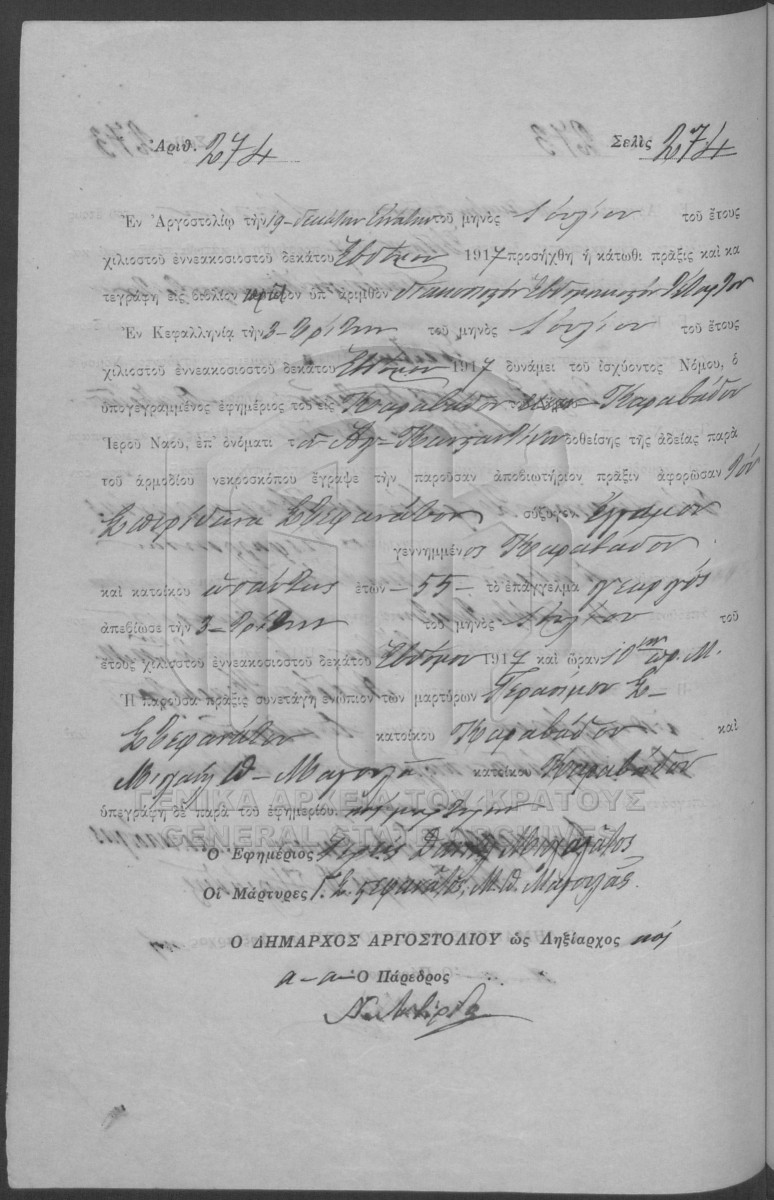 Ἀριθ. 274 Σελὶς 274
Ἐν Ἀργοστολίῳ τὴν 19- δεκάτην ἐνάτην τοῦ μηνὸς Ἰουλίου τοῦ ἔτους
χιλιοστοῦ ἐννεακοσιοστοῦ δεκάτου ἑβδόμου 1917 προσήχθη ἡ κάτωθι πρᾶξις καὶ κα
τεγράφη εἰς βιβλίον ὑπ' ἀριθμὸν διακοσιοστὸν ἑβδομηκοστὸν τέταρτον
Ἐν Κεφαλληνίᾳ τὴν 3- τρίτην τοῦ μηνὸς Ἰουλίου τοῦ ἔτους
χιλιοστοῦ ἐννεακοσιοστοῦ δεκάτου ἑβδόμου 1917 δυνάμει τοῦ ἰσχύοντος Νόμου, ὁ
ὑπογεγραμμένος ἐφημέριος τοῦ εἰς Καραβάδον Καραβάδου
Ἱεροῦ Ναοῦ, ἐπ' ὀνόματι τοῦ Ἁγ- Κωνσταντίνου δοθείσης τῆς ἀδείας παρὰ
τοῦ ἁρμοδίου νεκροσκόπου ἔγραψε τὴν παροῦσαν ἀποδιωτήριον πρᾶξιν ἀφορῶσαν τὸν
Σπυρίδωνα Στεφανᾶτον σύζυγον ἔγγαμον
γεννημμένος Καραβάδον
καὶ κατοίκου ὡσαύτως ἐτῶν -55- τὸ ἐπάγγελμα γεωργός
ἀπεβίωσε τὴν 3- τρίτην τοῦ μηνὸς Ἰουλίου τοῦ
ἔτους χιλιοστοῦ ἐννεακοσιοστοῦ δεκάτου ἑβδόμου 1917 καὶ ὥραν 10ην πρ. Μ.
Ἡ παροῦσα πρᾶξις συνετάγη ἐνώπιον τῶν μαρτύρων Γερασίμου Σ-
Στεφανάτου κατοίκου Καραβάδου καὶ
Μιχαὴλ Θ- Μαγουλᾶ κατοίκου Καραβάδου
ὑπεγράφη δὲ παρὰ τοῦ ἐφημερίου καὶ μαρτύρων
ΓΕΝΙΚΑ ΑΡΧΕΙΑ ΤΟΥ ΚΡΑΤΟΥΣ
GENERAL STATE ARCHIVES
Ὁ Ἐφημέριος Ἱερεὺς
Οἱ Μάρτυρες Γ. Σ. Στεφανᾶτος, Μ. Θ. Μαγουλᾶς.
Ο ΔΗΜΑΡΧΟΣ ΑΡΓΟΣΤΟΛΙΟΥ ὡς Ληξίαρχος καὶ
α-α- Ὁ Πάρεδρος